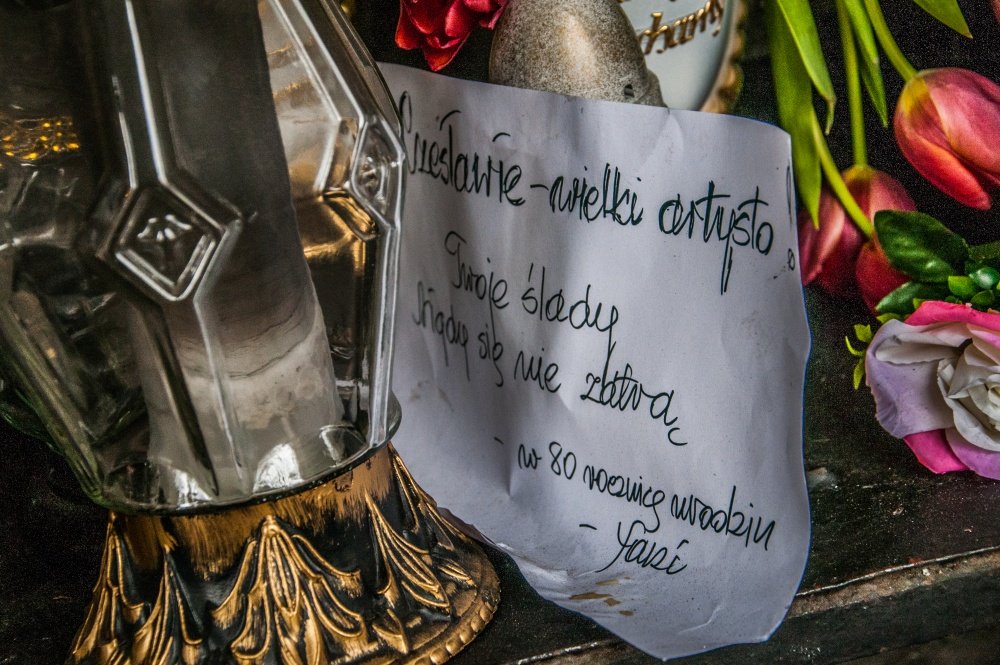 chamy
Czesławie - wielki artysto!
Twoje ślady
nigdy się nie zatrą,
- w 80 rocznicę urodzin
- fani